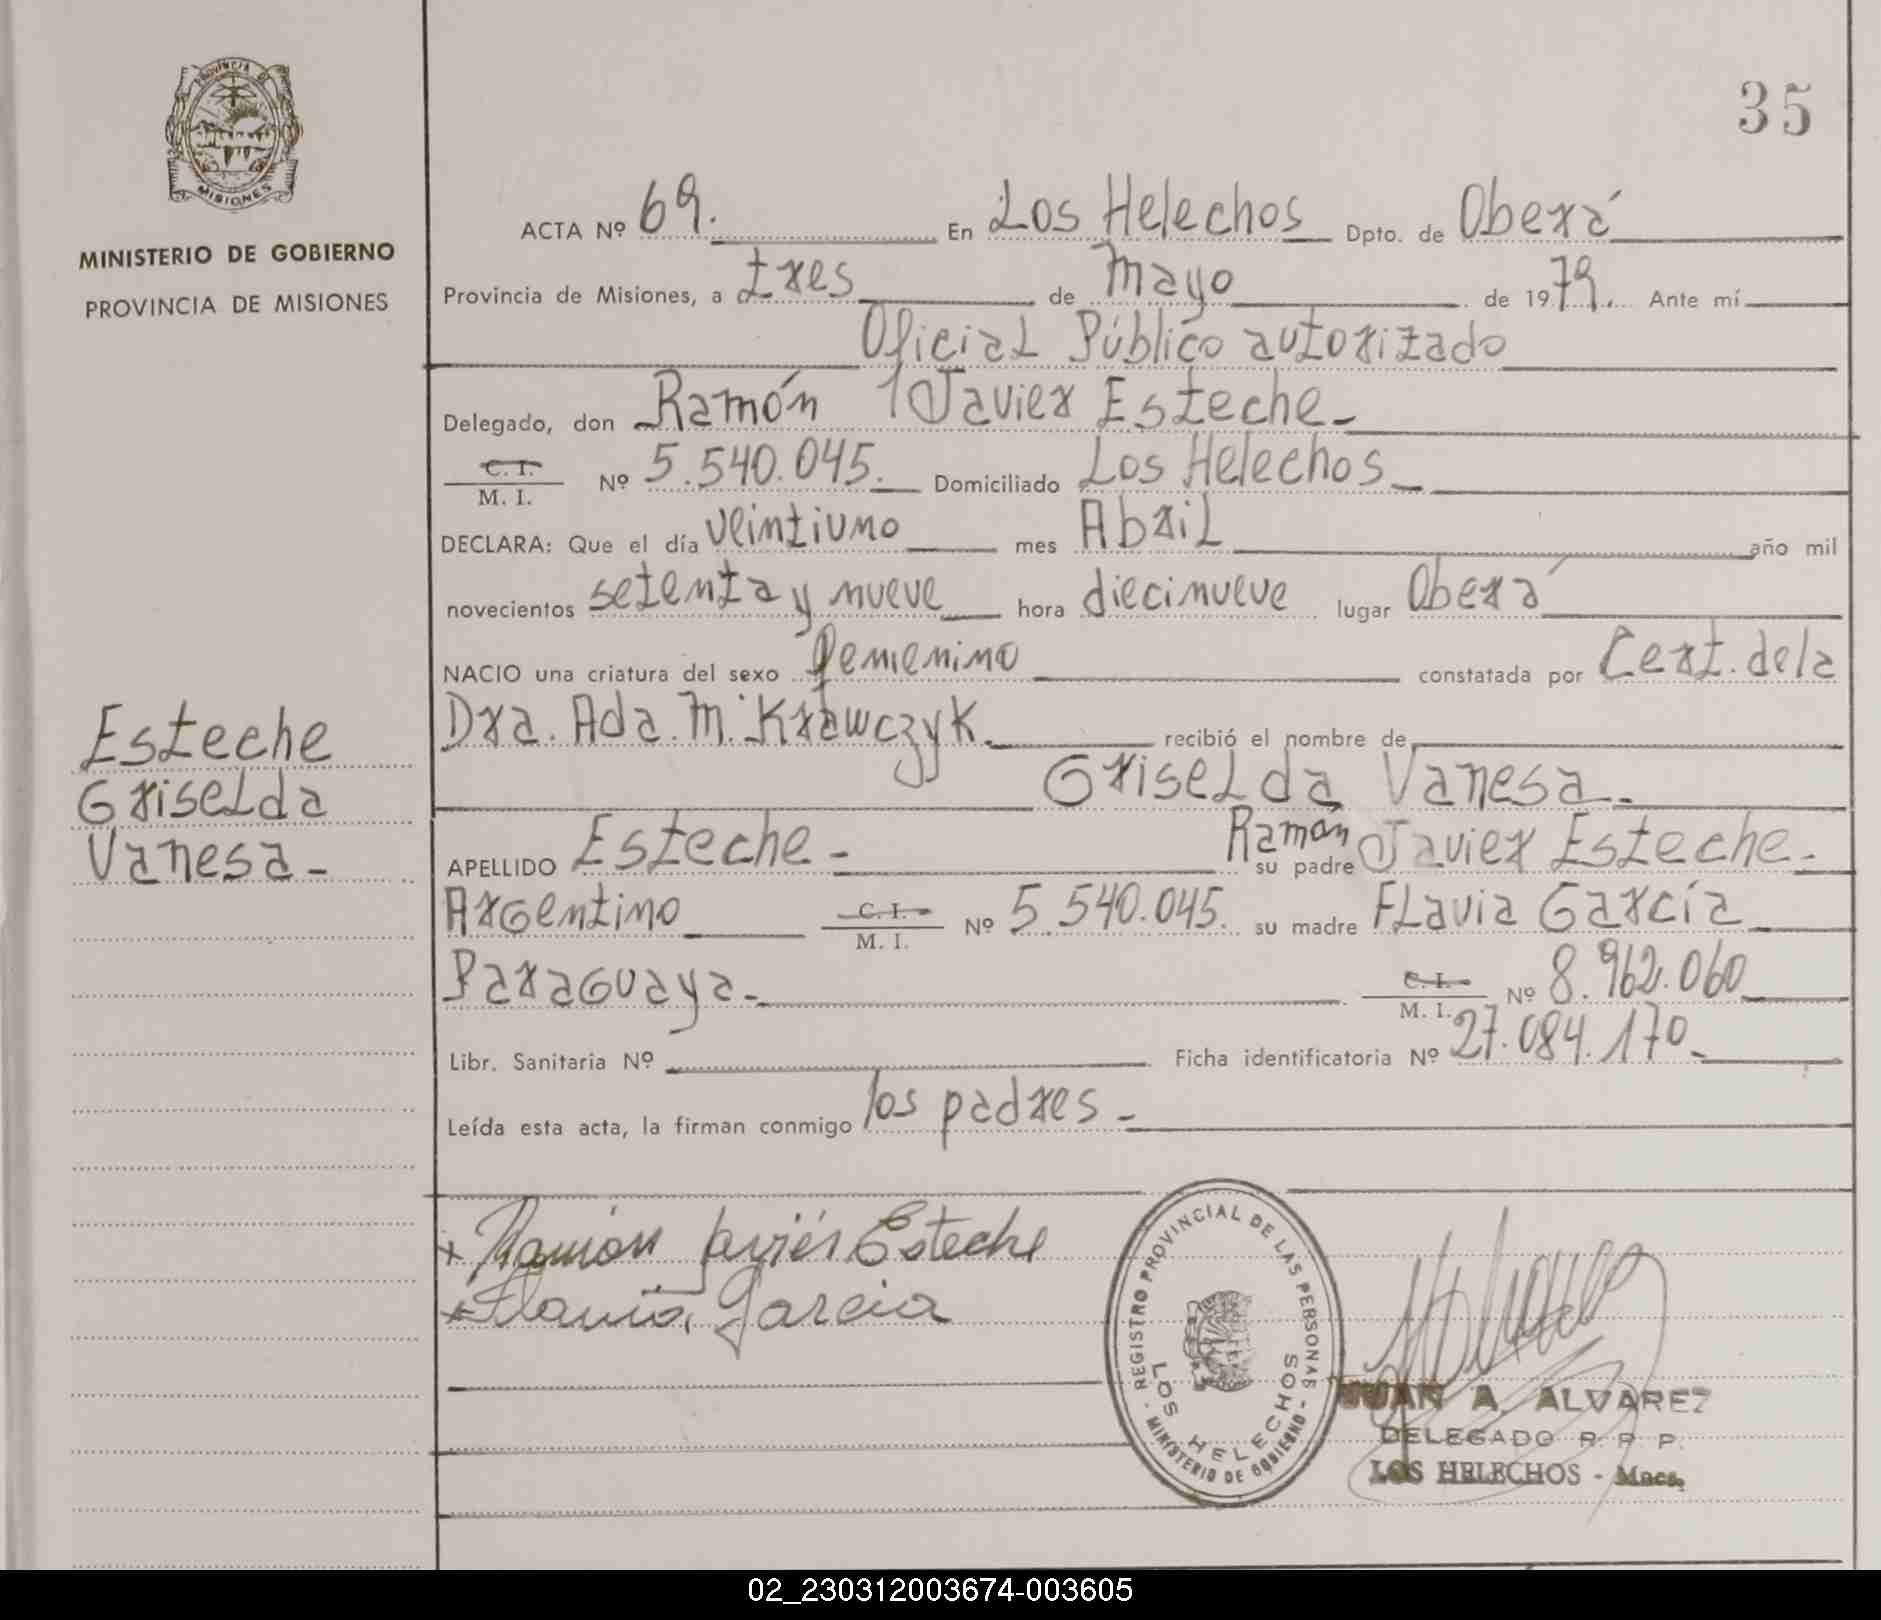 35
PROVINCIA DE
MISIONES
MINISTERIO DE GOBIERNO
PROVINCIA DE MISIONES
ACTA Nº 69. En Los Helechos Dpto. de Oberá
Provincia de Misiones, a tres de Mayo de 1979. Ante mí
Oficial Público autorizado
Delegado, don Ramón Javier Esteche
C. I.
M. I. Nº 5.540.045. Domiciliado Los Helechos
DECLARA: Que el día veintiuno mes Abril año mil
novecientos setenta y nueve hora diecinueve lugar Oberá
NACIO una criatura del sexo femenino constatada por Cert. de la
Dra. Ada. M. Krawczyk. recibió el nombre de
Griselda Vanesa.
APELLIDO Esteche - su padre Ramón Javier Esteche.
Argentino C. I.
M. I. Nº 5.540.045. su madre Flavia García
Paraguaya - C. I.
M. I. Nº 8.962.060
Libr. Sanitaria Nº Ficha identificatoria Nº 27.084.170
Leída esta acta, la firman conmigo los padres -
Esteche
Griselda
Vanesa -
+ Ramón Javiér Esteche
+ Flavia Garcia
REGISTRO PROVINCIAL DE LAS PERSONAS
- MINISTERIO DE GOBIERNO -
LOS HELECHOS
JUAN A. ALVAREZ
DELEGADO R. P. P.
LOS HELECHOS - Mnes.
02_230312003674-003605